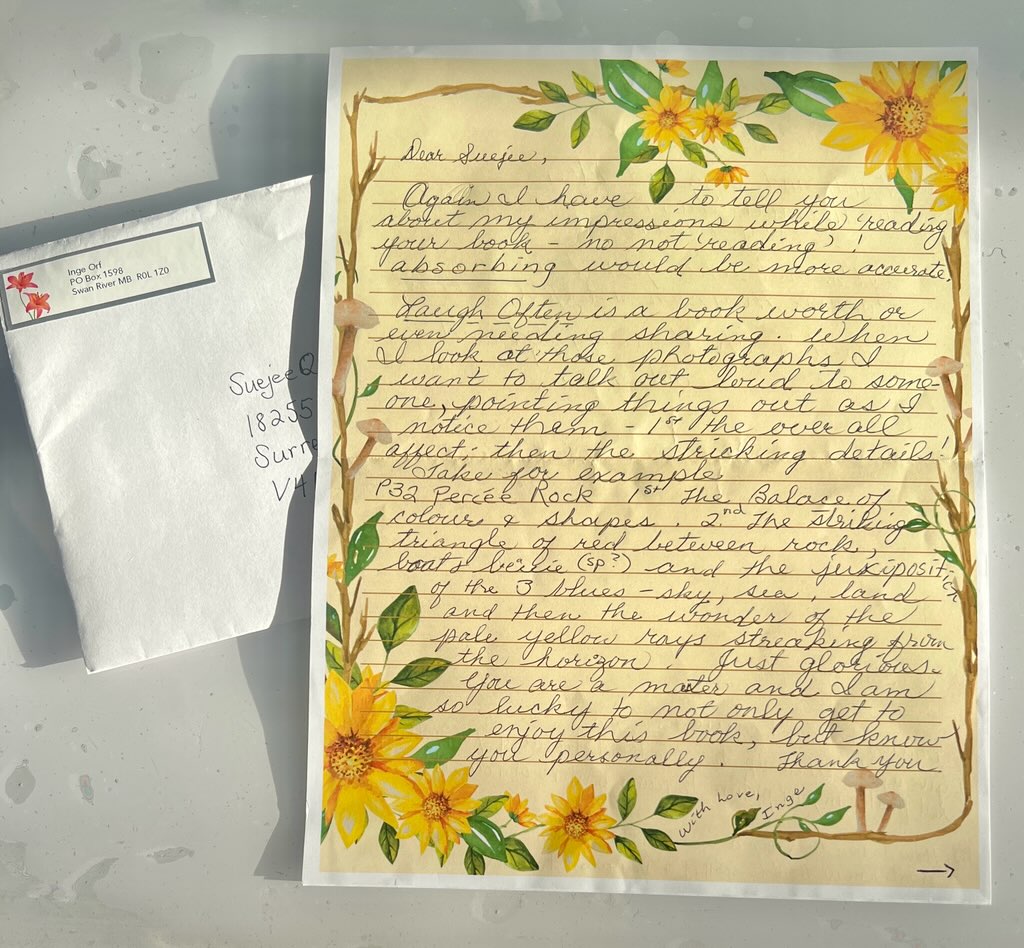 Inge Orf
PO Box 1598
Swan River MB R0L 1Z0
SuejeeQ
18255
Surre
V4
Dear Suejee,
Again I have to tell you
about my impressions while 'reading
your book - no not 'reading' !
absorbing would be more accurate.
Laugh Often is a book worth or
even needing sharing. When
I look at those photographs, I
want to talk out loud to some-
one, pointing things out as I
notice them - 1st the over all
affect; then the stricking details!
Take for example
P32 Percée Rock 1st The Balace of
colour & shapes. 2nd The striking
triangle of red between rock,
boats (sp?) and the juxiposition
of the 3 blues - sky, sea, land
and then the wonder of the
pale yellow rays streaking from
the horizon. Just glorious.
You are a and I am
so lucky to not only get to
enjoy this book, but know
you personally. Thank you
With Love,
Inge
→